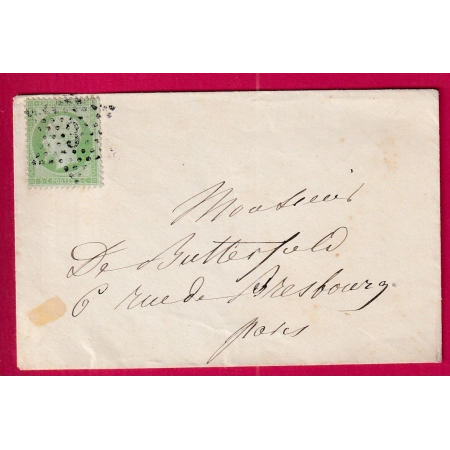 Monsieur
De Butterfield
6 rue de Bresbourg
Paris